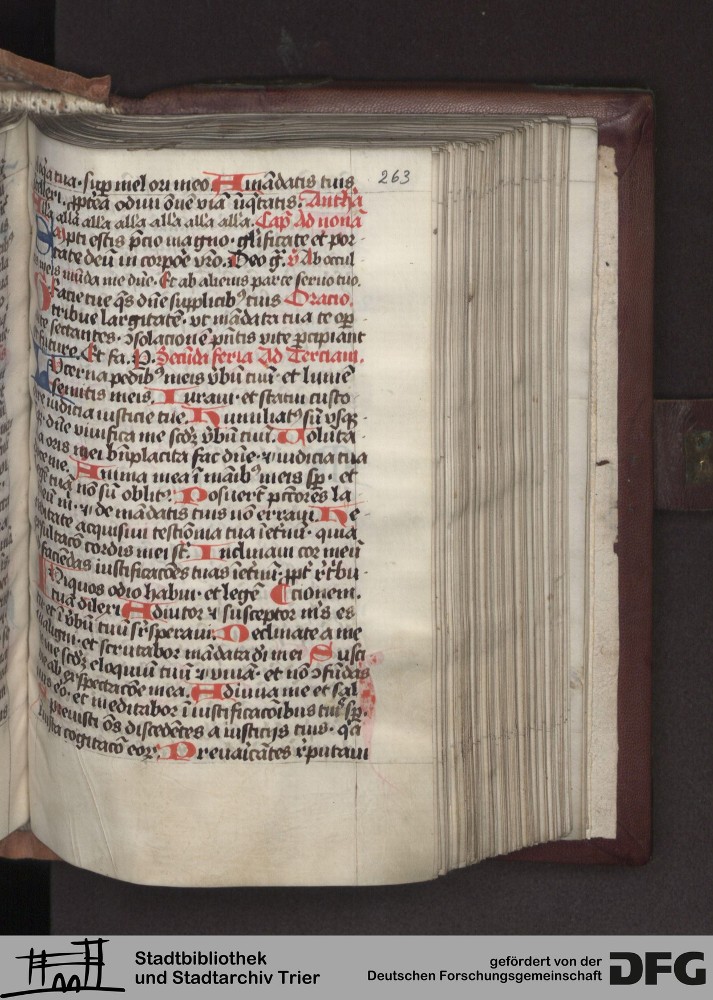 tua · sup mel ori meo A mādatis tuis
263
odiui oēm viā iniqtatis. Antha
alla alla alla alla alla alla. Cap Ad nonā
Empti estis p̄cio magno · glificate et por
tate deū in corpoē vrō. Deo g. v Ab occul
meis mūda me dn̄e. Et ab alienis parce seruo tuo.
tue qs dn̄e supplicibꝰ tuis Oratio.
tribue largitatē · vt mādata tua te op
sectantes · ꝯsolacionē p̄ntis vite p̄cipiant
et future. Et fa. P. Secūda feria Ad Terciam.
Lucerna pedibꝰ meis vbū tuū · et lumē
semitis meis. Iuraui · et statui custo
iudicia iusticie tue. Humiliatꝰ sū vsq
dn̄e viuifica me scdꝫ vbū tuū. Volūta
oris mei bn̄placita fac dn̄e · et iudicia tua
me. Anima mea ī manibꝰ meis sp · et
tuā nō sū oblitꝰ. Posuerūt p̄ctores la
m · et de mādatis tuis nō erraui. He
acquisiui testiōnia tua īetnū · quia
cordis mei st. Inclinaui cor meū
faciēdas iustificacōes tuas īetnū · ppt rt̄bu
Iniquos odio habui · et legē Ctionem.
tuā dilexi Adiutor et susceptor m̄s es
et ī vbū tuū sr̄speraui. Declinate a me
maligni · et scrutabor mādata dī mei Susci
me scdꝫ eloquiū tuū et viuā · et nō ꝯfūdas
me ab exspectacōe mea. Adiuua me et sal
ero · et meditabor ī iustificacōibus tuis sp.
Spreuisti oēs discedētes a iusticijs tuis · qa
iniusta cogitacō eoꝝ. Preuaicātes rputaui
Stadtbibliothek
und Stadtarchiv Trier
gefördert von der
Deutschen Forschungsgemeinschaft
DFG